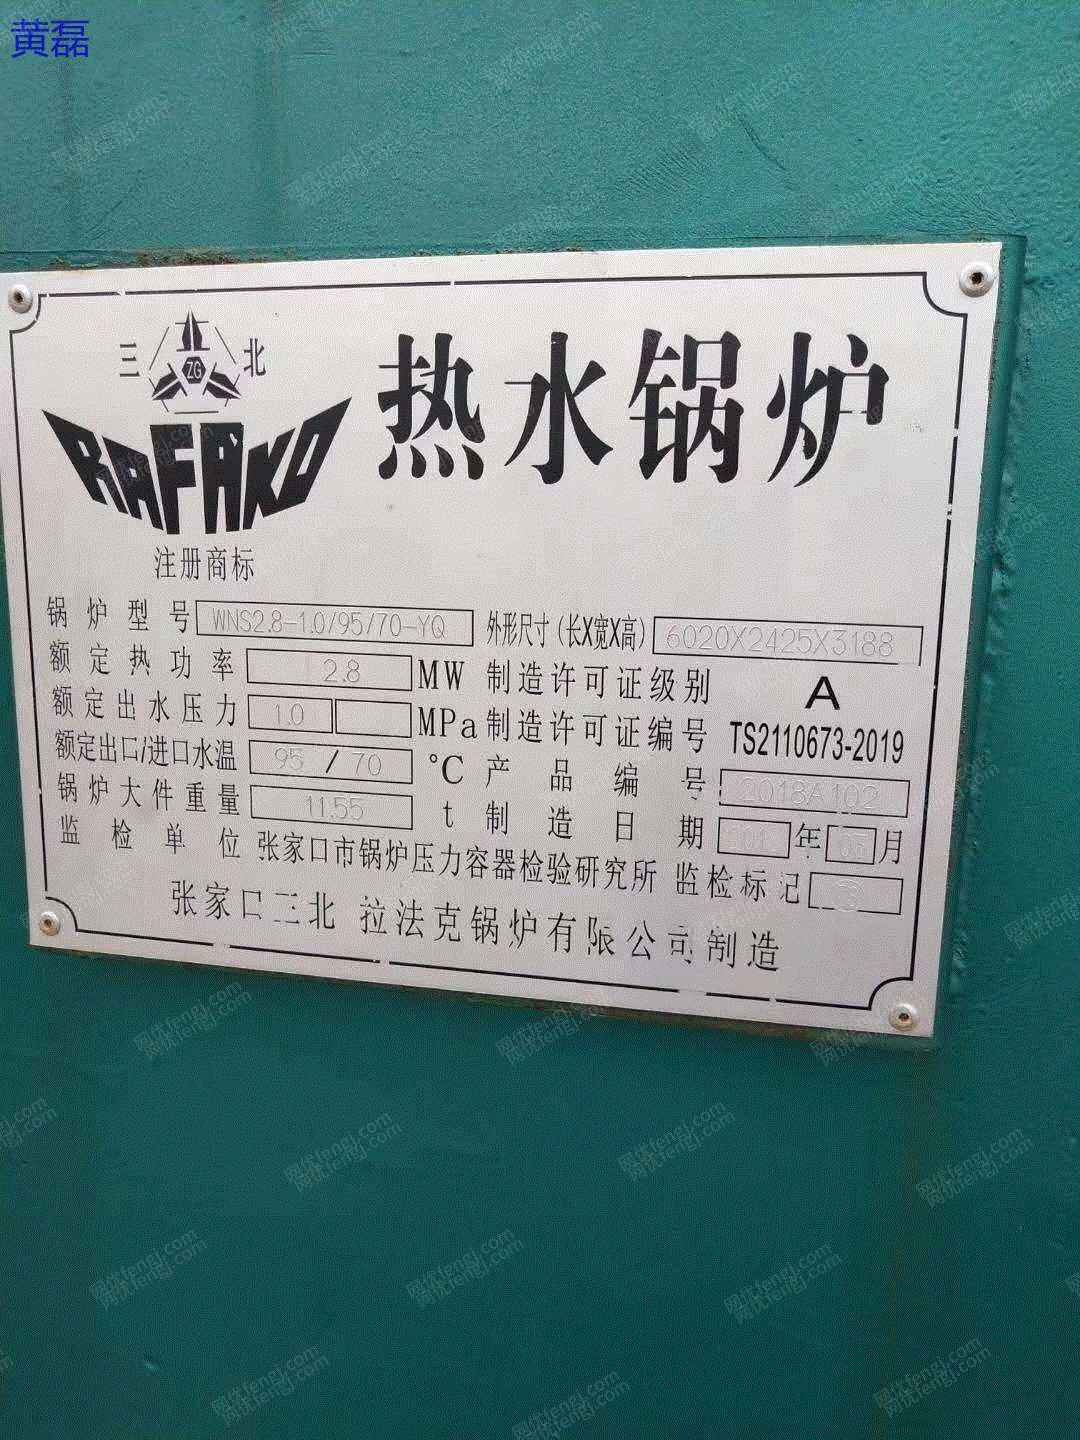 黄磊
三 北
ZG
RAFAKO
热水锅炉
注册商标
锅炉型号 WNS2.8-1.0/95/70-YQ 外形尺寸(长X宽X高) 6020X2425X3188
额定热功率 2.8 MW 制造许可证级别 A
额定出水压力 1.0 MPa 制造许可证编号 TS2110673-2019
额定出口/进口水温 95 / 70 °C 产品编号 2018A102
锅炉大件重量 11.55 t 制造日期 年 月
监检单位 张家口市锅炉压力容器检验研究所 监检标记
张家口三北 拉法克锅炉有限公司制造
网优fengj.com